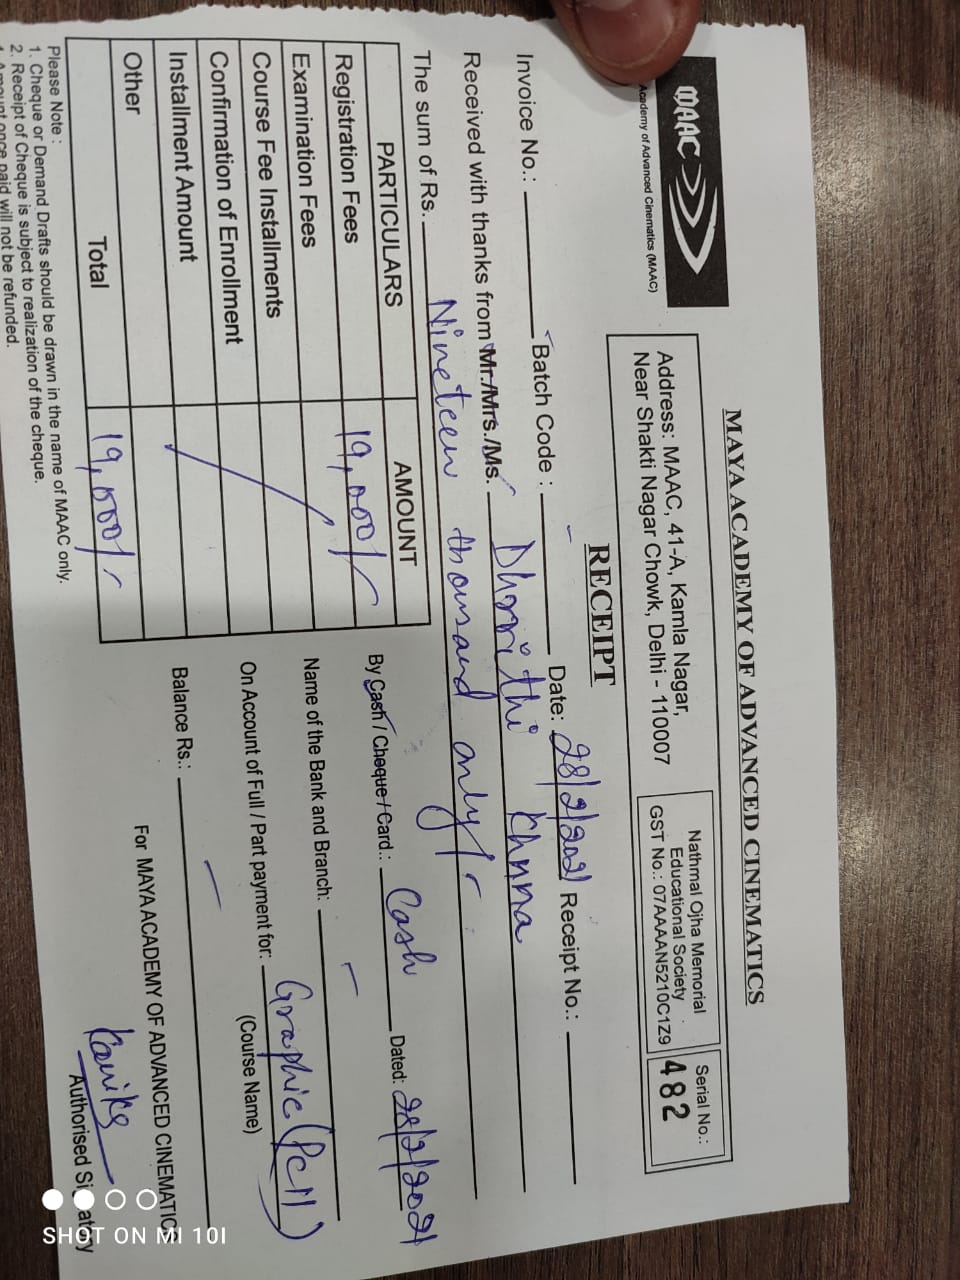 MAYA ACADEMY OF ADVANCED CINEMATICS
MAAC
Academy of Advanced Cinematics (MAAC)
Address: MAAC, 41-A, Kamla Nagar,
Near Shakti Nagar Chowk, Delhi - 110007
Nathmal Ojha Memorial
Educational Society
GST No.: 07AAAAN5210C1Z9
Serial No.:
482
RECEIPT
Invoice No.: Batch Code : - Date: 28/2/2021 Receipt No.:
Received with thanks from Mr./Mrs./Ms. Dhrrithi Khnna
The sum of Rs. Nineteen thousand only/-
PARTICULARS AMOUNT
Registration Fees 19,000/-
Examination Fees
Course Fee Installments
Confirmation of Enrollment
Installment Amount
Other
Total 19,000/-
By Cash / Cheque / Card.: Cash Dated: 28/2/2021
Name of the Bank and Branch: -
On Account of Full / Part payment for: Graphic
(Course Name)
Balance Rs.: -
For MAYA ACADEMY OF ADVANCED CINEMATICS
Authorised Signatory
Please Note :
1. Cheque or Demand Drafts should be drawn in the name of MAAC only.
2. Receipt of Cheque is subject to realization of the cheque.
Amount once paid will not be refunded.
SHOT ON MI 10I